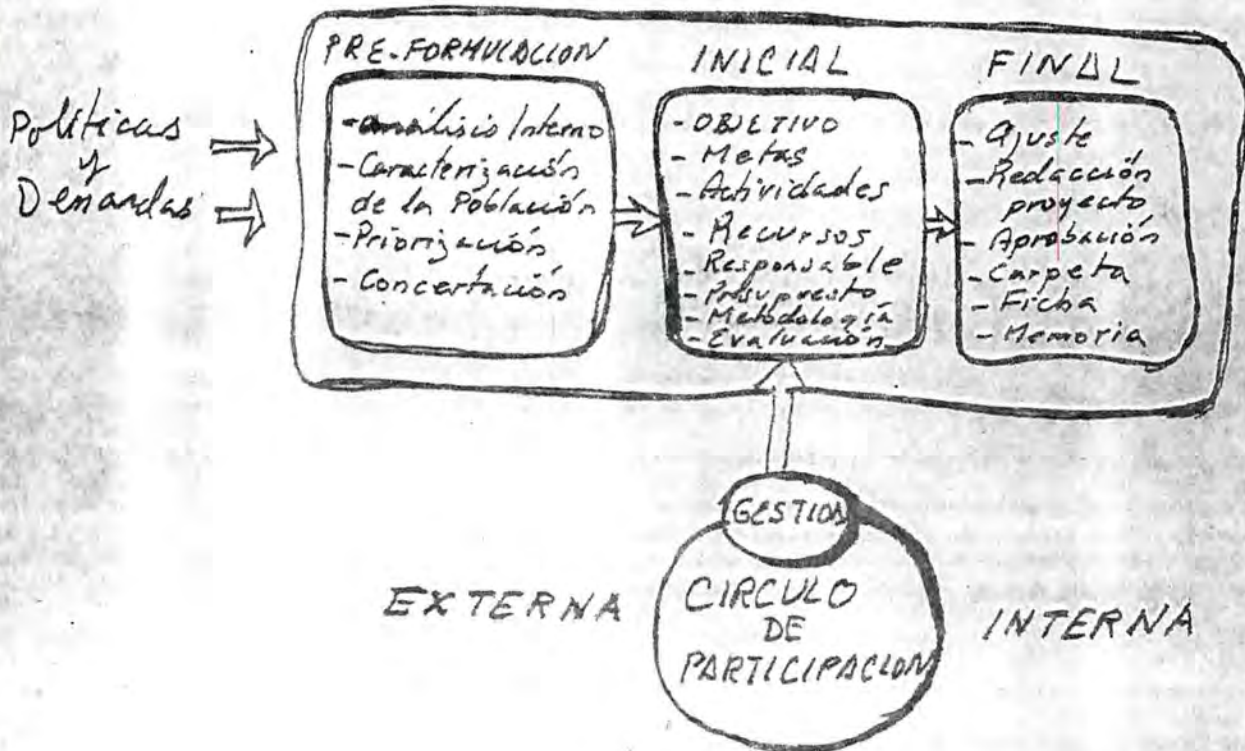 Políticas
y
Demandas
PRE-FORMULACION
- análisis Interno
- Caracterización
de la Población
- Priorización
- Concertación
INICIAL
- OBJETIVO
- Metas
- Actividades
- Recursos
- Responsable
- Presupuesto
- Metodología
- Evaluación
FINAL
- Ajuste
- Redacción
proyecto
- Aprobación
- Carpeta
- Ficha
- Memoria
GESTION
EXTERNA
CIRCULO
DE
PARTICIPACION
INTERNA